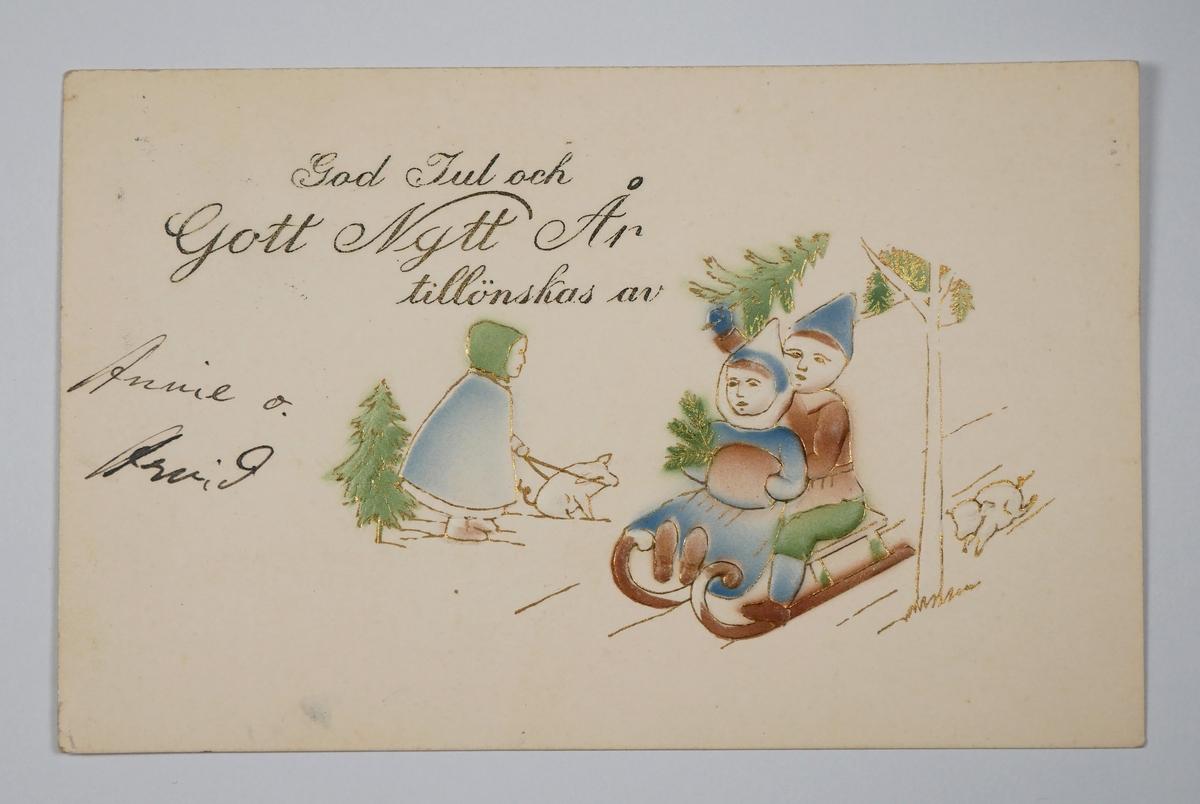 God Jul och
Gott Nytt År
tillönskas av
Annie o.
Arvid